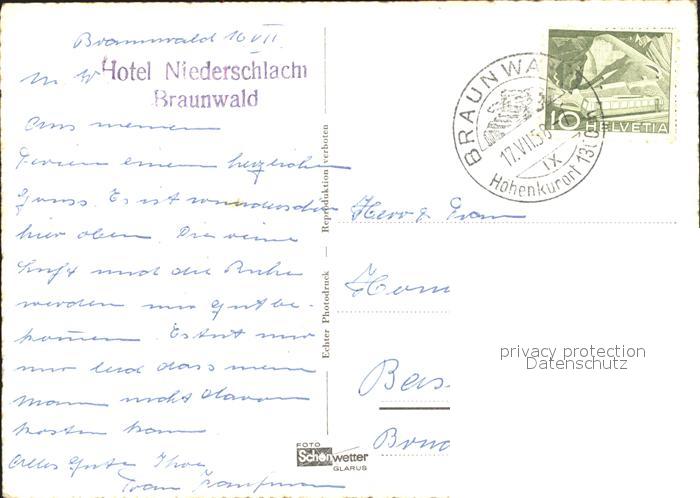 Braunwald 16 VII.
Hotel Niederschlacht
Braunwald
Aus meinen
Ferien einen herzlichen
Gruss. Es ist wunderschön
hier oben. Die reine
Luft und die Ruhe
werden mir gut be-
kommen. Es tut mir
nur leid dass mein
Mann nicht davon
kosten kann.
Alles Gute Ihre
Frau
Reproduktion verboten
Echter Photodruck
FOTO
Schönwetter
GLARUS
BRAUNWALD
17.VII.58
IX
Höhenkurort 1300m
10 HELVETIA
Herr & Frau
privacy protection
Datenschutz